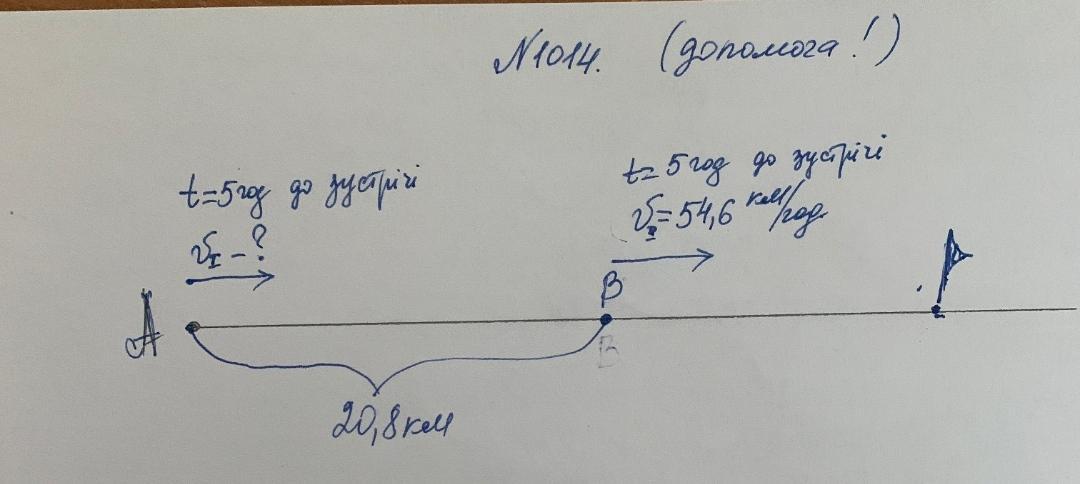 №1014. (допомога!)
t=5год до зустрічі
t=5год до зустрічі
V₁ - ?
V₂=54,6 км/год
A
B
B
20,8км